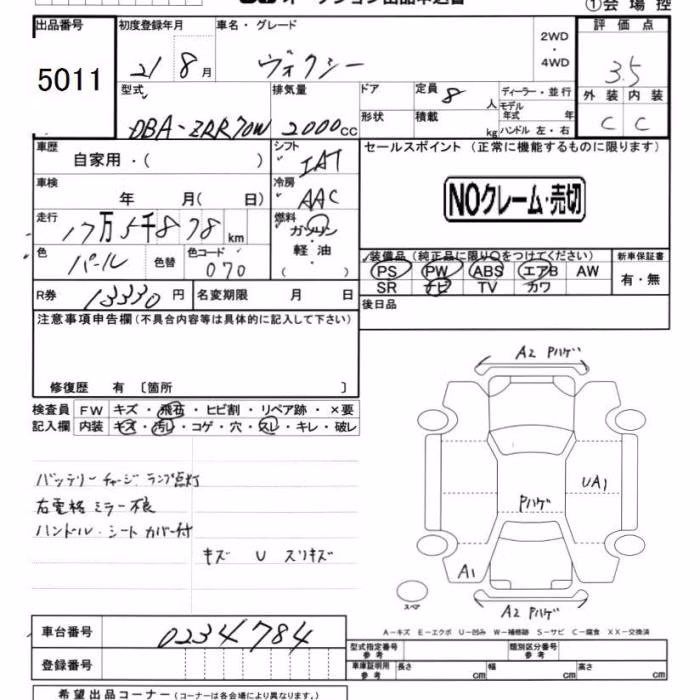 ①会場控
出品番号 5011
初度登録年月 21 8月
車名・グレード ヴォクシー
2WD・4WD
評価点 3.5
型式 DBA-ZRR70W
排気量 2000cc
ドア
形状
定員 8人
積載 kg
ディーラー・並行
モデル年式 年
ハンドル 左・右
外装 内装
C C
車歴 自家用・( )
シフト IAT
セールスポイント (正常に機能するものに限ります)
車検 年 月( 日)
冷房 AAC
NOクレーム・売切
走行 17万5千878km
燃料 ガソリン・軽油・( )
色 パール 色替
色コード 070
装備品 (純正品に限り○をつけてください)
PS PW ABS エアB AW
SR ナビ TV カワ
新車保証書 有・無
R券 13330円
名変期限 月 日
後日品
注意事項申告欄 (不具合内容等は具体的に記入して下さい)
修復歴 有 〔箇所 〕
検査員記入欄
FW キズ・飛石・ヒビ割・リペア跡・×要
内装 キズ・汚れ・コゲ・穴・スレ・キレ・破レ
バッテリーチャージランプ点灯
右電格ミラー不良
ハンドル・シートカバー付
キズ U スリキズ
A2 Pハゲ
UA1
Pハゲ
A1
A2 Pハゲ
スペア
A－キズ E－エクボ U－凹み W－補修跡 S－サビ C－腐食 XX－交換済
車台番号 0234784
登録番号
型式指定番号 参考
類別区分番号 参考
車庫証明用 参考 長さ cm 幅 cm 高さ cm
希望出品コーナー (コーナーは各会場により異なります。)